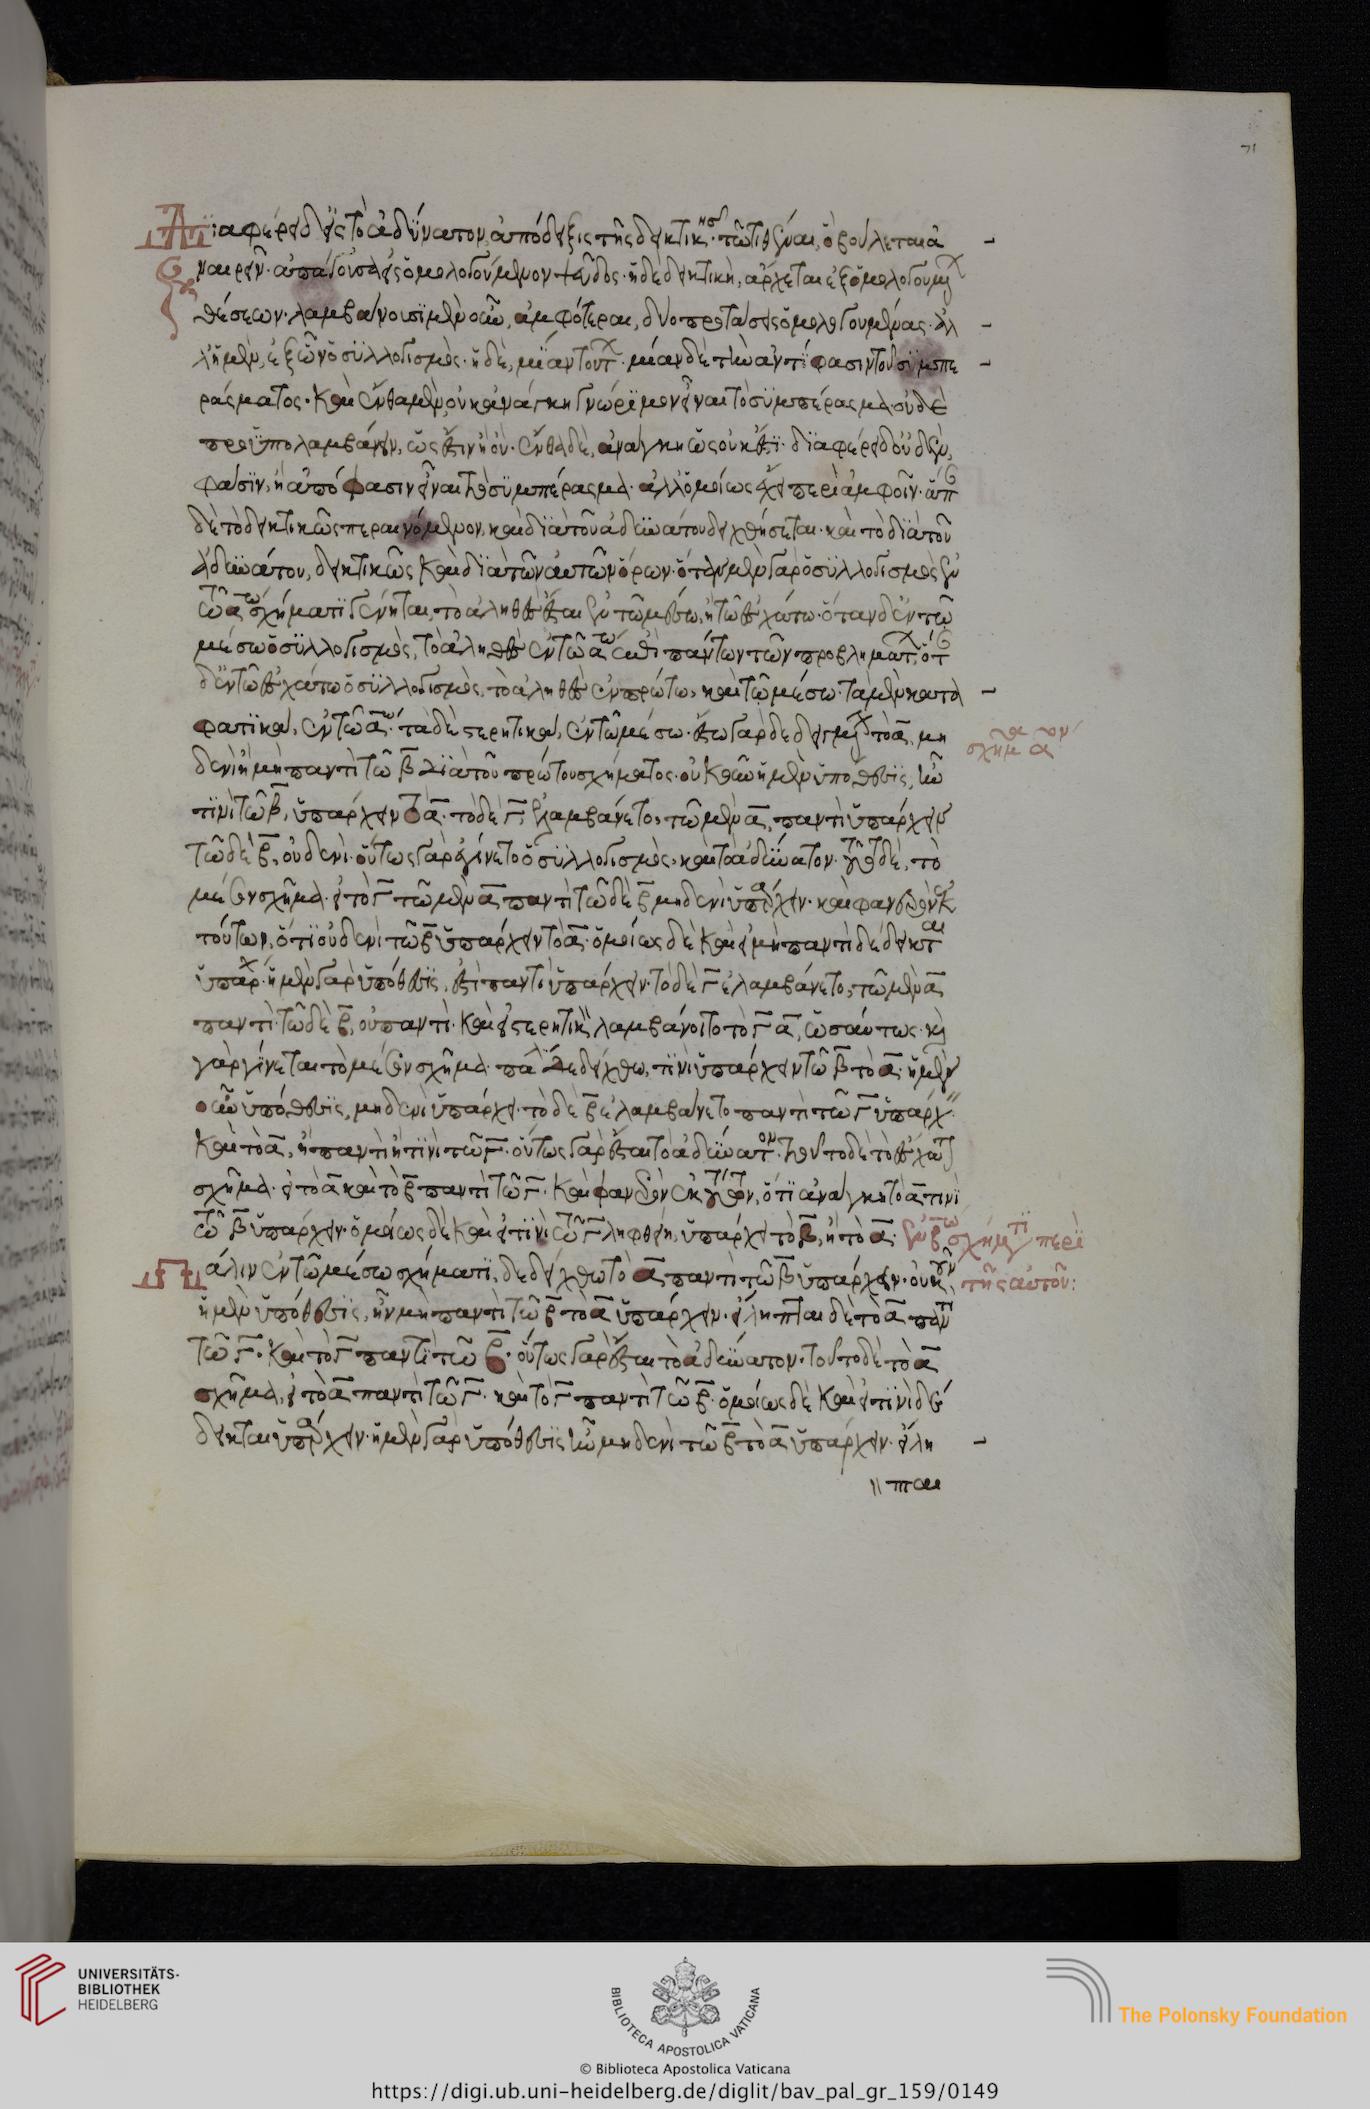 Διαφέρει δ' ἡ εἰς τὸ ἀδύνατον ἀπόδειξις τῆς δεικτικῆς· τῶ τιθέναι, ὃ βούλεται ἀ
ναιρεῖν· ἀπάγουσα εἰς ὁμολογούμενον ψεῦδος· ἡ δὲ δεικτικὴ, ἄρχεται ἐξ ὁμολογουμένων
θέσεων· λαμβάνουσι μὲν οὖν, ἀμφότεραι, δύο προτάσεις ὁμολογουμένας· ἀλ
λ' ἡ μὲν, ἐξ ὧν ὁ συλλογισμὸς· ἡ δὲ, μίαν τούτων· μίαν δὲ τὴν ἀντίφασιν τοῦ συμπε
ράσματος· καὶ ἔνθα μὲν, οὐκ ἀνάγκη γνώριμον εἶναι τὸ συμπέρασμα· οὐδὲ
προϋπολαμβάνειν, ὡς ἔστιν ἢ οὔ· ἔνθα δὲ, ἀνάγκη ὡς οὐκ ἔστι· διαφέρει δ' οὐδὲν,
φάσιν, ἢ ἀπόφασιν εἶναι τὸ συμπέρασμα· ἀλλ' ὁμοίως ἔχει περὶ ἀμφοῖν· ἅπαν
δὲ τὸ δεικτικῶς περαινόμενον, καὶ διὰ τοῦ ἀδυνάτου δειχθήσεται· καὶ τὸ διὰ τοῦ
ἀδυνάτου, δεικτικῶς καὶ διὰ τῶν αὐτῶν ὅρων· ὅταν μὲν γὰρ ὁ συλλογισμὸς ἐν
τῶ α τω σχήματι γένηται, τὸ ἀληθὲς ἔσται ἐν τῶ μέσω, ἢ τῶ ἐσχάτω· ὅταν δ' ἐν τῶ
μέσω ὁ συλλογισμὸς, τὸ ἀληθὲς ἐν τῶ α τω ἐπὶ πάντων τῶν προβλημάτων· ὅταν
δ' ἐν τῶ ἐσχάτω ὁ συλλογισμὸς, τὸ ἀληθὲς ἐν πρώτω, καὶ τῶ μέσω· τὰ μὲν κατα
φατικὰ, ἐν τῶ α ω· τὰ δὲ στερητικὰ, ἐν τῶ μέσω· ἔστω γὰρ δεδειγμένον τὸ α, μη
δενὶ ἢ μὴ παντὶ τῶ β διὰ τοῦ πρώτου σχήματος· οὐκοῦν ἡ μὲν ὑπόθεσις, ἦν
τινὶ τῶ β, ὑπάρχειν τὸ α· τὸ δὲ γ, ἐλαμβάνετο, τῶ μὲν α, παντὶ ὑπάρχειν
τῶ δὲ β, οὐδενὶ· οὕτως γὰρ ἐγίνετο ὁ συλλογισμὸς, καὶ τὸ ἀδύνατον· τοῦτο δὲ, τὸ
μέσον σχῆμα· εἰ τὸ γ τῶ μὲν α παντὶ τῶ δὲ β μηδενὶ ὑπάρχειν· καὶ φανερὸν ἐκ
τούτων, ὅτι οὐδενὶ τῶ β ὑπάρχειν τὸ α· ὁμοίως δὲ καὶ εἰ μὴ παντὶ δέδεικται
ὑπάρχειν· ἡ μὲν γὰρ ὑπόθεσις, ἐστὶ παντὶ ὑπάρχειν· τὸ δὲ γ ἐλαμβάνετο, τῶ μὲν α
παντὶ· τῶ δὲ β, οὐ παντὶ· καὶ εἰ στερητικὸν λαμβάνοιτο τὸ γ α, ὡσαύτως· καὶ
γὰρ γίνεται τὸ μέσον σχῆμα· πάλιν δεδείχθω, τινὶ ὑπάρχειν τῶ β τὸ α· ἡ μὲν
οὖν ὑπόθεσις, μηδενὶ ὑπάρχει· τὸ δὲ β ἐλαμβάνετο παντὶ τῶ γ ὑπάρχειν·
καὶ τὸ α, ἢ παντὶ ἢ τινὶ τῶ γ· οὕτως γὰρ ἔσται τὸ ἀδύνατον· τοῦτο δὲ τὸ ἔσχατον
σχῆμα· εἰ τὸ α καὶ τὸ β παντὶ τῶ γ· καὶ φανερὸν ἐκ τούτων, ὅτι ἀνάγκη τὸ α τινὶ
τῶ β ὑπάρχειν· ὁμοίως δὲ καὶ εἰ τινὶ τῶ γ ληφθείη, ὑπάρχει τὸ β, ἢ τὸ α·
Πάλιν ἐν τῶ μέσω σχήματι, δεδείχθω τὸ α παντὶ τῶ β ὑπάρχειν· οὐκοῦν
ἡ μὲν ὑπόθεσις, ἦν μὴ παντὶ τῶ β τὸ α ὑπάρχειν· εἴληπται δὲ τὸ α παντὶ
τῶ γ· καὶ τὸ γ παντὶ τῶ β· οὕτως γὰρ ἔσται τὸ ἀδύνατον· τοῦτο δὲ τὸ α
σχῆμα, εἰ τὸ α παντὶ τῶ γ· καὶ τὸ γ παντὶ τῶ β· ὁμοίως δὲ καὶ εἰ τινὶ δέ
δεικται ὑπάρχειν· ἡ μὲν γὰρ ὑπόθεσις ἦν μηδενὶ τῶ β τὸ α ὑπάρχειν· εἴλη
πται
σχῆμα α ον
ἐν β ω σχήματι περὶ
τῆς αὐτοῦ:
71
UNIVERSITÄTS-
BIBLIOTHEK
HEIDELBERG
BIBLIOTECA APOSTOLICA VATICANA
© Biblioteca Apostolica Vaticana
The Polonsky Foundation
https://digi.ub.uni-heidelberg.de/diglit/bav_pal_gr_159/0149